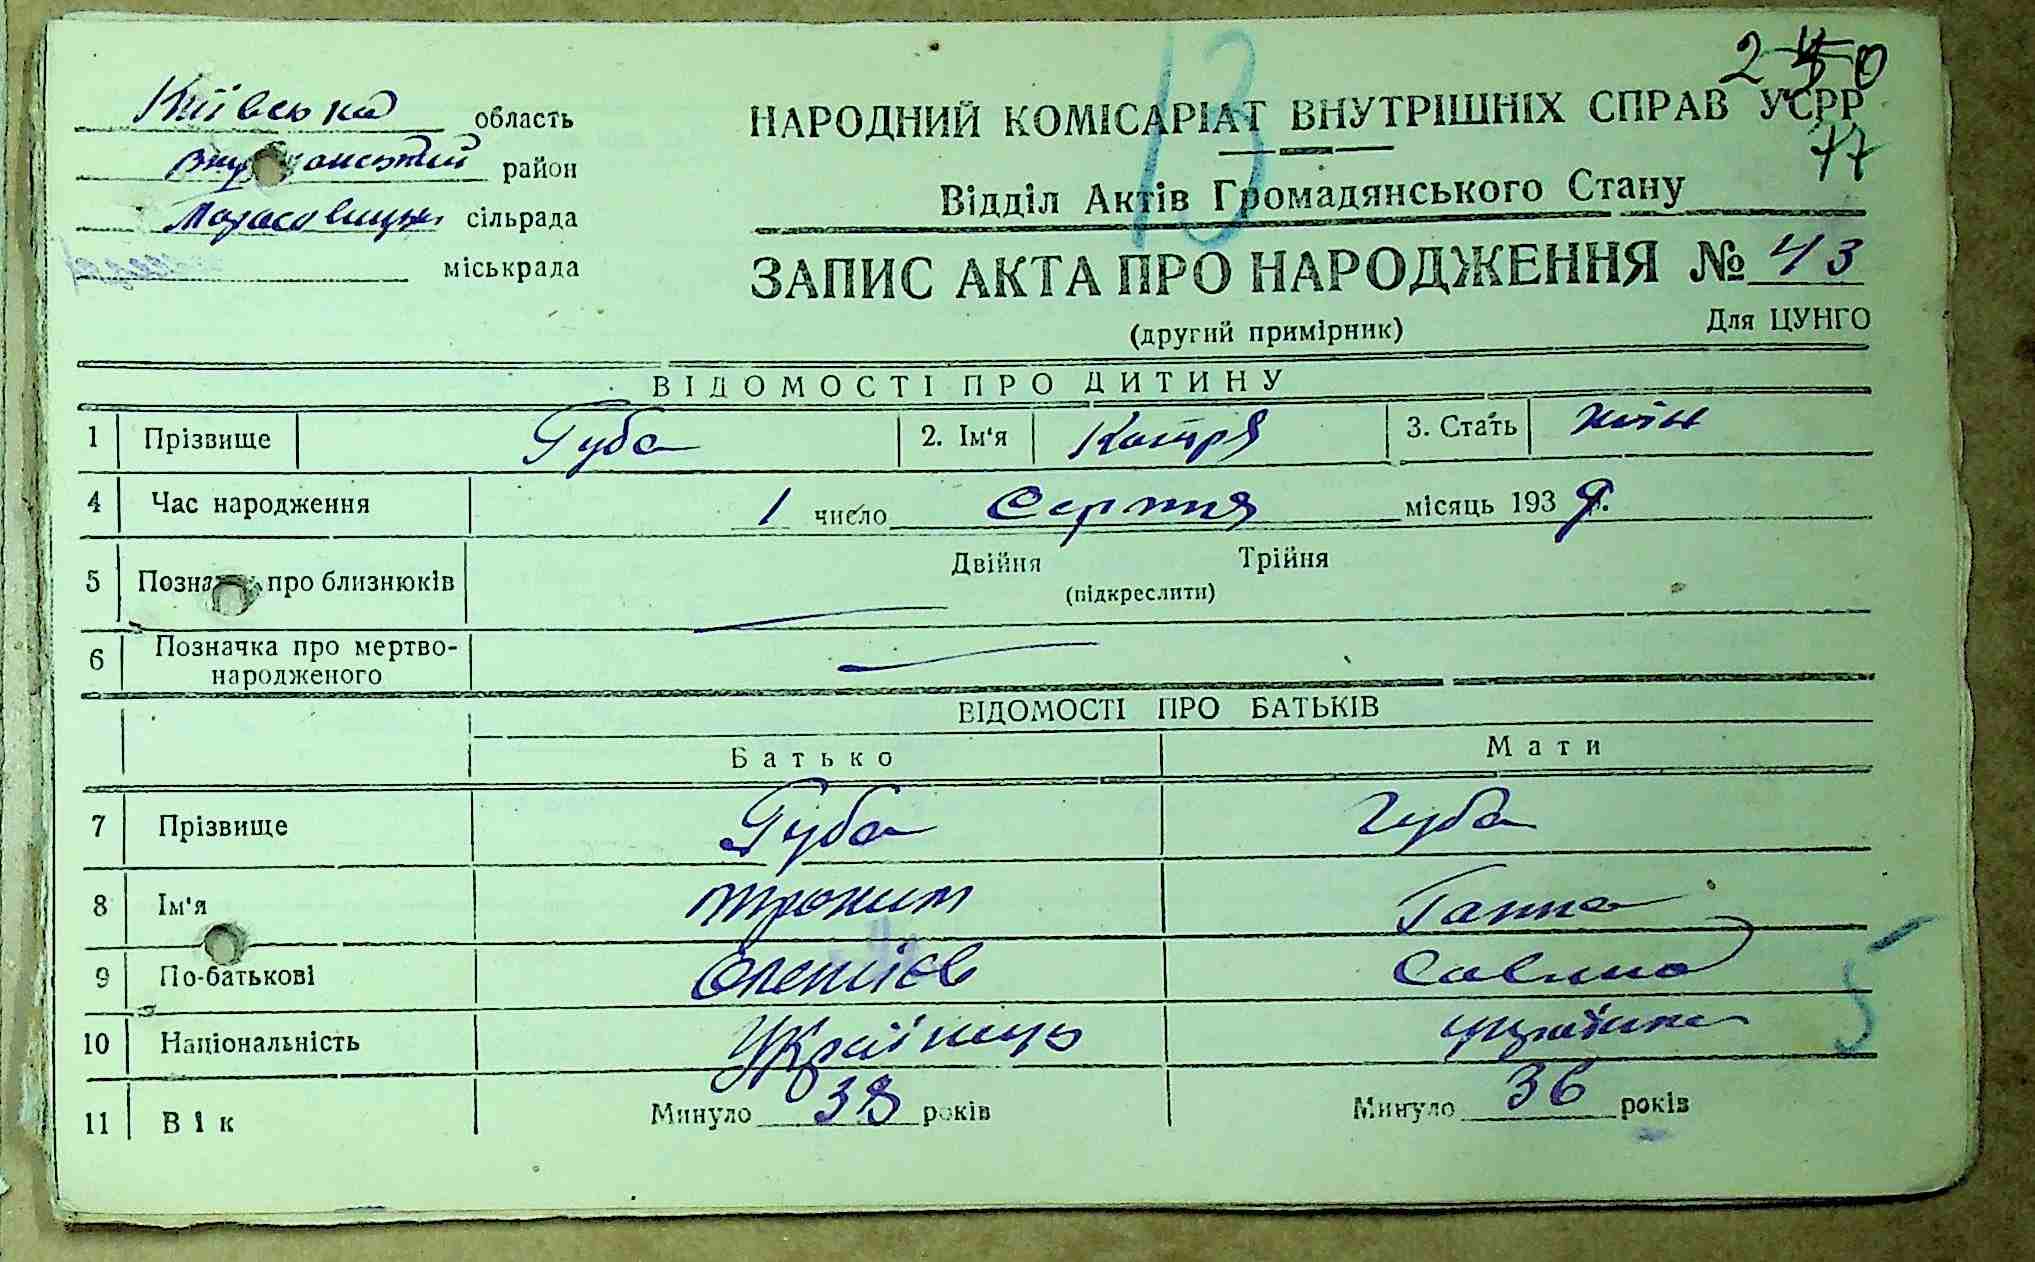 250
Київська область
НАРОДНИЙ КОМІСАРІАТ ВНУТРІШНІХ СПРАВ УСРР
77
13
район
Відділ Актів Громадянського Стану
сільрада
міськрада
ЗАПИС АКТА ПРО НАРОДЖЕННЯ № 43
(другий примірник)
Для ЦУНГО
ВІДОМОСТІ ПРО ДИТИНУ
1 Прізвище Губа 2. Ім'я Катря 3. Стать жін
4 Час народження 1 число Серпня місяць 193
5 Позна про близнюків Двійня Трійня
(підкреслити)
6 Позначка про мертво-
народженого
ВІДОМОСТІ ПРО БАТЬКІВ
Батько Мати
7 Прізвище Губа Губа
8 Ім'я Трохим Ганна
9 По-батькові Олексієв
10 Національність Українець українка
5
11 Вік Минуло 38 років Минуло 36 років